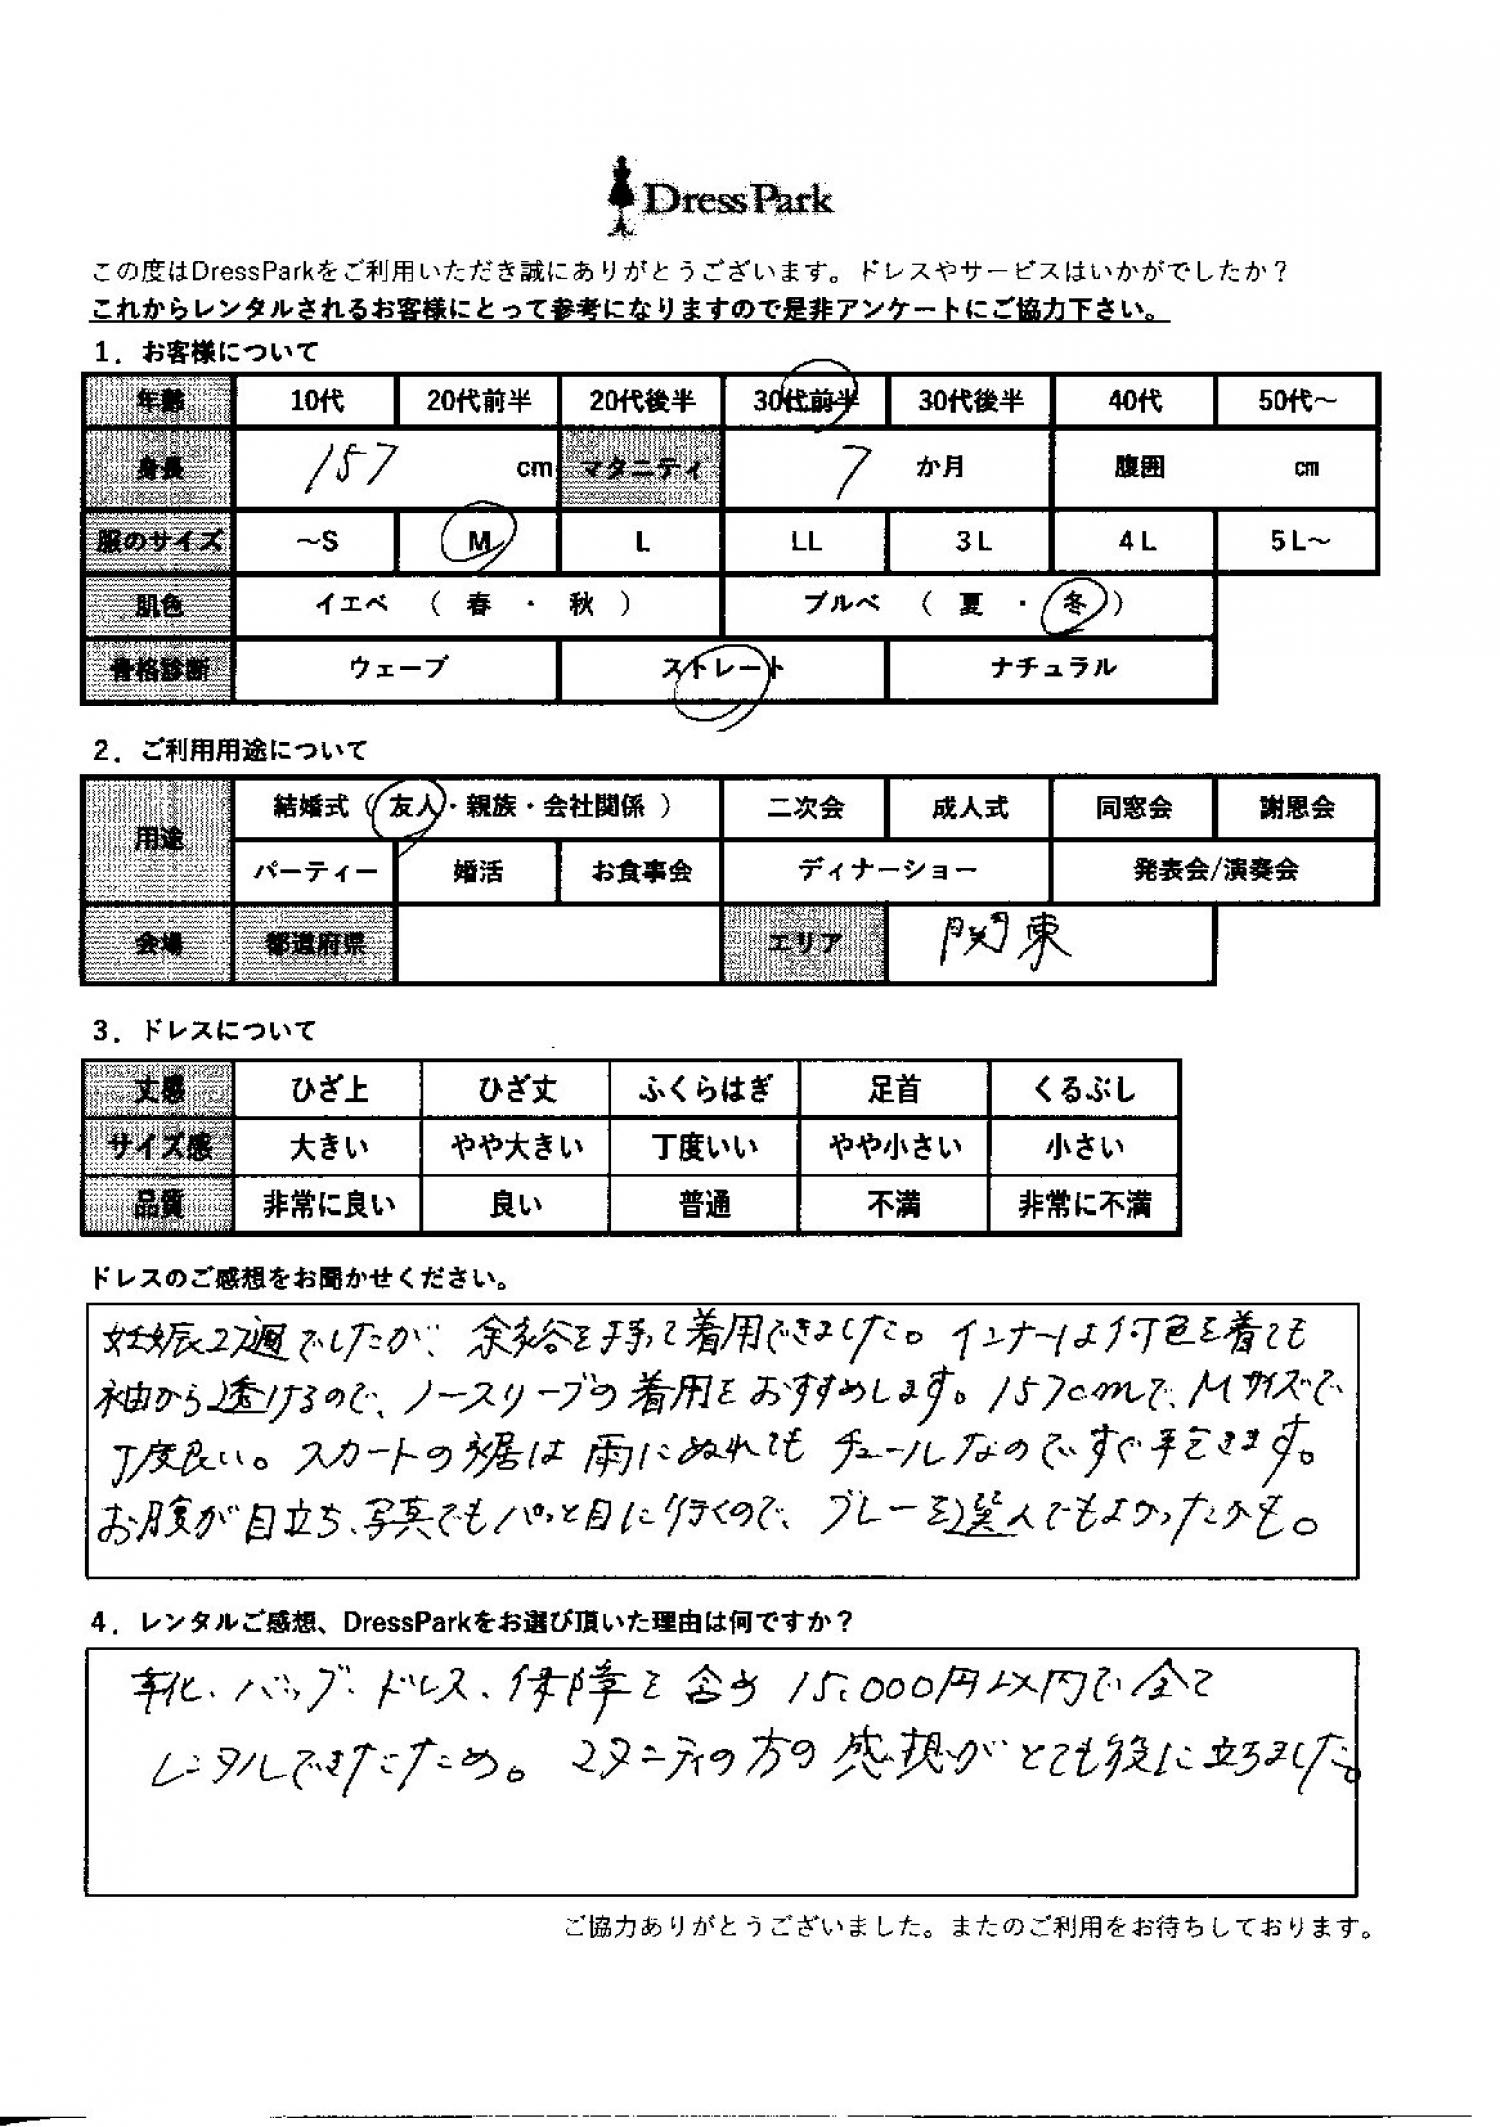 DressPark
この度はDressParkをご利用いただき誠にありがとうございます。ドレスやサービスはいかがでしたか？
これからレンタルされるお客様にとって参考になりますので是非アンケートにご協力下さい。
1．お客様について
年齢 10代 20代前半 20代後半 30代前半 30代後半 40代 50代～
身長 157 cm マタニティ 7 か月 腹囲 cm
服のサイズ ～S M L LL 3L 4L 5L～
肌色 イエベ （ 春 ・ 秋 ） ブルベ （ 夏 ・ 冬 ）
骨格診断 ウェーブ ストレート ナチュラル
2．ご利用用途について
用途 結婚式（ 友人・親族・会社関係 ） 二次会 成人式 同窓会 謝恩会
パーティー 婚活 お食事会 ディナーショー 発表会/演奏会
会場 都道府県 エリア 関東
3．ドレスについて
丈感 ひざ上 ひざ丈 ふくらはぎ 足首 くるぶし
サイズ感 大きい やや大きい 丁度いい やや小さい 小さい
品質 非常に良い 良い 普通 不満 非常に不満
ドレスのご感想をお聞かせください。
妊娠27週でしたが、余裕を持って着用できました。インナーは何色を着ても
袖から透けるので、ノースリーブの着用をおすすめします。157cmで、Mサイズで
丁度良い。スカートの裾は雨にぬれてもチュールなのですぐ乾きます。
お腹が目立ち、写真でもパッと目に行くので、グレーを選んでもよかったかも。
4．レンタルご感想、DressParkをお選び頂いた理由は何ですか？
靴、バッグ、ドレス、保障を含め15,000円以内で全て
レンタルできたため。マタニティの方の感想がとても役に立ちました。
ご協力ありがとうございました。またのご利用をお待ちしております。